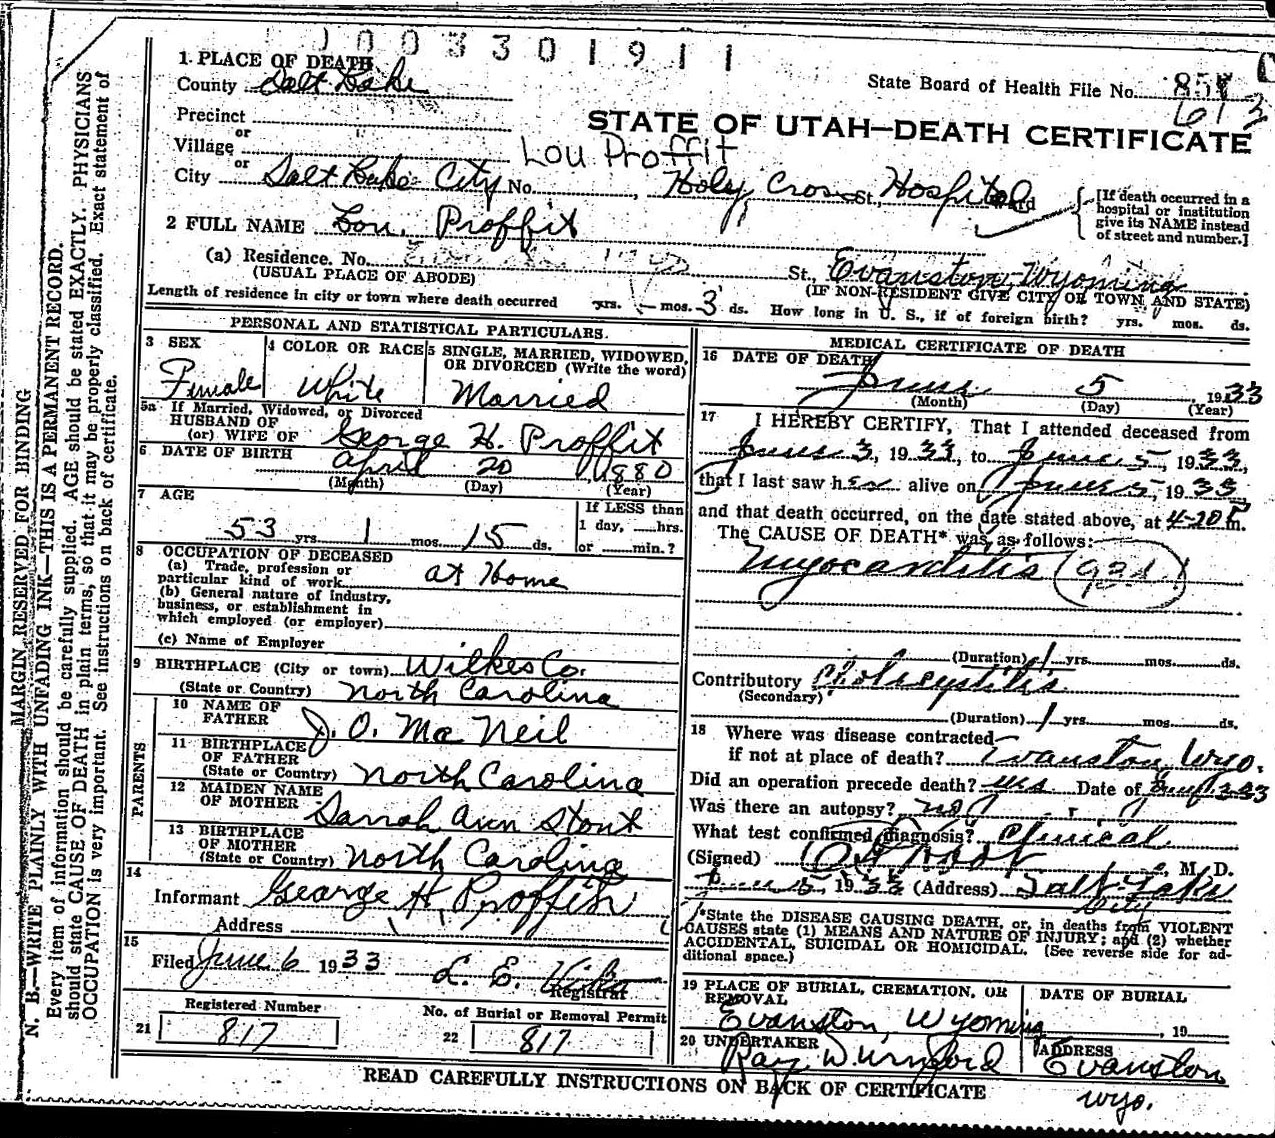 003301911
1 PLACE OF DEATH
County Salt Lake
State Board of Health File No.
Precinct
or
STATE OF UTAH—DEATH CERTIFICATE
Village
Lou Proffit
or
City Salt Lake City No. , Holy Cross St., Hospital Ward
[If death occurred in a hospital or institution give its NAME instead of street and number.]
2 FULL NAME Lou. Proffit
(a) Residence. No. St., Evanston, Wyoming
(USUAL PLACE OF ABODE) (IF NON-RESIDENT GIVE CITY OR TOWN AND STATE)
Length of residence in city or town where death occurred yrs. mos. 3 ds. How long in U. S., if of foreign birth? yrs. mos. ds.
PERSONAL AND STATISTICAL PARTICULARS.
3 SEX 4 COLOR OR RACE 5 SINGLE, MARRIED, WIDOWED, OR DIVORCED (Write the word)
Female White Married
5a If Married, Widowed, or Divorced
HUSBAND OF
(or) WIFE OF George H. Proffit
6 DATE OF BIRTH April 20 1880
(Month) (Day) (Year)
7 AGE If LESS than
53 yrs. 1 mos. 15 ds. 1 day, hrs.
or min.?
8 OCCUPATION OF DECEASED
(a) Trade, profession or
particular kind of work at Home
(b) General nature of industry,
business, or establishment in
which employed (or employer)
(c) Name of Employer
9 BIRTHPLACE (City or town) Wilkes Co.
(State or Country) North Carolina
PARENTS
10 NAME OF
FATHER J. O. Mc Neil
11 BIRTHPLACE
OF FATHER
(State or Country) North Carolina
12 MAIDEN NAME
OF MOTHER Sarrah Ann Stout
13 BIRTHPLACE
OF MOTHER
(State or Country) North Carolina
14
Informant George H. Proffit
Address
15
Filed June 6 1933 L. E.
Registrar
Registered Number No. of Burial or Removal Permit
21 817 22 817
MEDICAL CERTIFICATE OF DEATH
16 DATE OF DEATH
June 5, 1933
(Month) (Day) (Year)
17 I HEREBY CERTIFY, That I attended deceased from
June 3, 1933, to June 5, 1933,
that I last saw her alive on June 5, 1933
and that death occurred, on the date stated above, at 4-20 P m.
The CAUSE OF DEATH* was as follows:
Myocarditis
(Duration) 1 yrs. mos. ds.
Contributory Cholecystitis
(Secondary)
(Duration) 1 yrs. mos. ds.
18 Where was disease contracted
if not at place of death? Evanston, Wyo.
Did an operation precede death? yes Date of
Was there an autopsy? no
What test confirmed diagnosis? Clinical
(Signed) , M. D.
June 5, 1933 (Address) Salt Lake
City
*State the DISEASE CAUSING DEATH, or, in deaths from VIOLENT
CAUSES state (1) MEANS AND NATURE OF INJURY; and (2) whether
ACCIDENTAL, SUICIDAL OR HOMICIDAL. (See reverse side for ad-
ditional space.)
19 PLACE OF BURIAL, CREMATION, OR REMOVAL DATE OF BURIAL
Evanston, Wyoming , 19
20 UNDERTAKER ADDRESS
Ray Evanston,
Wyo.
READ CAREFULLY INSTRUCTIONS ON BACK OF CERTIFICATE
MARGIN RESERVED FOR BINDING
N. B.—WRITE PLAINLY WITH UNFADING INK—THIS IS A PERMANENT RECORD.
Every item of information should be carefully supplied. AGE should be stated EXACTLY. PHYSICIANS
should state CAUSE OF DEATH in plain terms, so that it may be properly classified. Exact statement of
OCCUPATION is very important. See instructions on back of certificate.